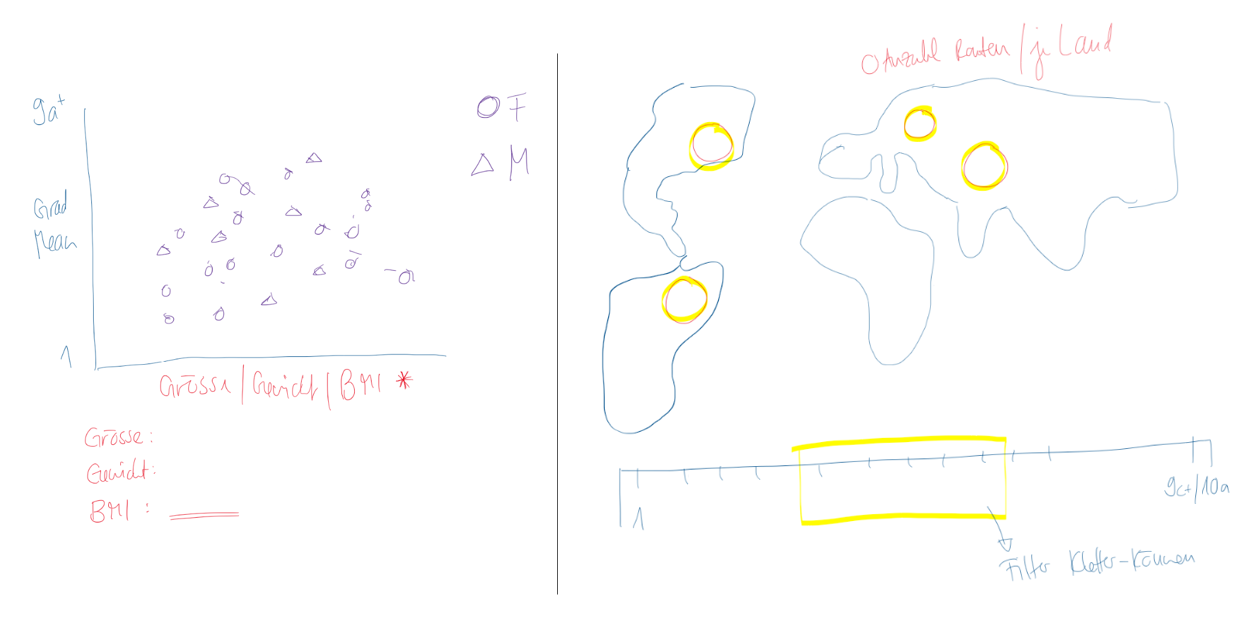 9a+
Grad
Mean
1
○ F
△ M
Grösse/Gewicht/BMI *
Grösse:
Gewicht:
BMI:
O Anzahl Routen/je Land
1
9c+/10a
Filter Kletter-Können